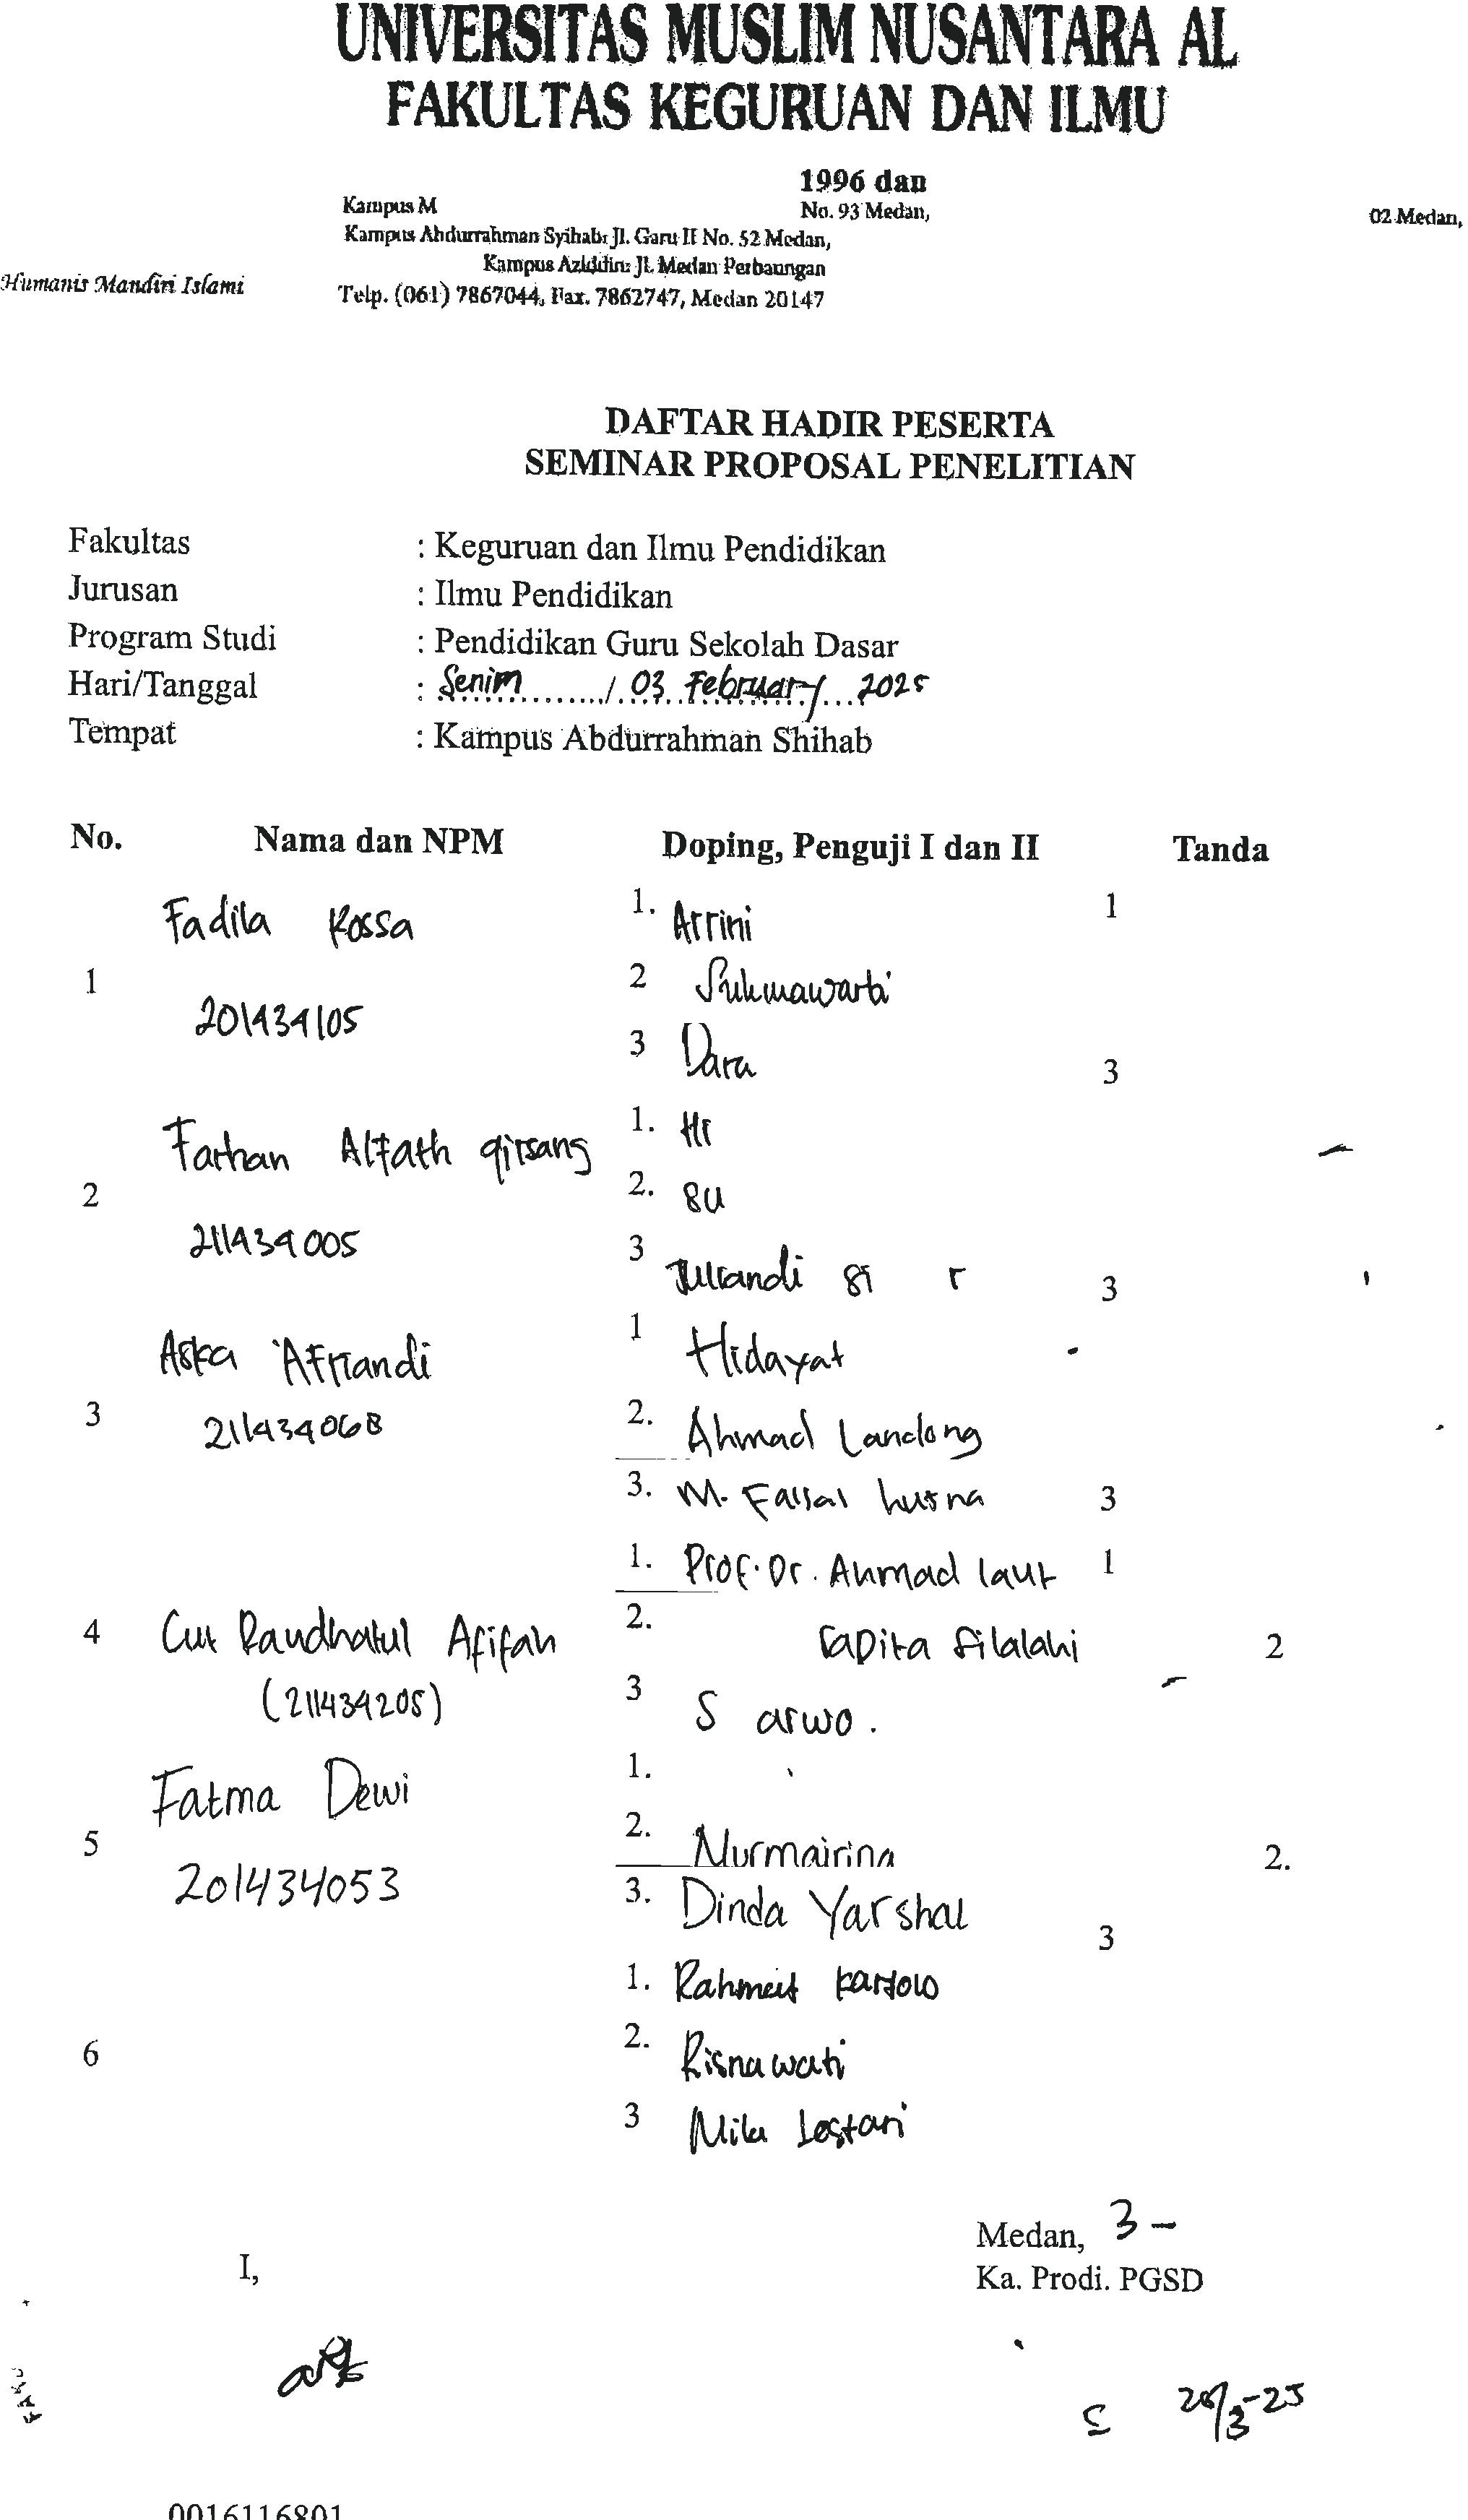 UNIVERSITAS MUSLIM NUSANTARA AL
FAKULTAS KEGURUAN DAN ILMU
1996 dan
Kampus M No. 93 Medan, 02 Medan,
Kampus Abdurrahman Syihab: Jl. Garu II No. 52 Medan,
Kampus Aziddin: Jl. Medan Perbaungan
Humanis Mandiri Islami
Telp. (061) 7867044, Fax. 7862747, Medan 20147
DAFTAR HADIR PESERTA
SEMINAR PROPOSAL PENELITIAN
Fakultas : Keguruan dan Ilmu Pendidikan
Jurusan : Ilmu Pendidikan
Program Studi : Pendidikan Guru Sekolah Dasar
Hari/Tanggal : Senim / 03 February 2025
Tempat : Kampus Abdurrahman Shihab
No. Nama dan NPM Doping, Penguji I dan II Tanda
Fadila Rossa 1. Arrini 1
1 2 Sukmawarti
201434105
3 Dara 3
Farhan Alfath girsang 1. HI
2 2. SU
211434005
3 Juliandi si r 3
Aska Afriandi 1 Hidayat
3 211434068 2. Ahmad Landong
3. M. Faisal husna 3
1. Prof. Dr. Ahmad laut 1
4 Cut Raudhatul Afifah 2. Sapita Silalahi 2
(211434205) 3 S arwo.
Fatma Dewi 1.
5 2. Nurmairina 2.
201434053 3. Dinda Yarshal 3
1. Rahmat Kartolo
6 2. Risnawati
3 Mila Lestari
Medan, 3 -
I, Ka. Prodi. PGSD
S 28/3-25
0016116801